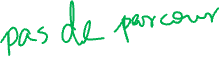 pas de parcour